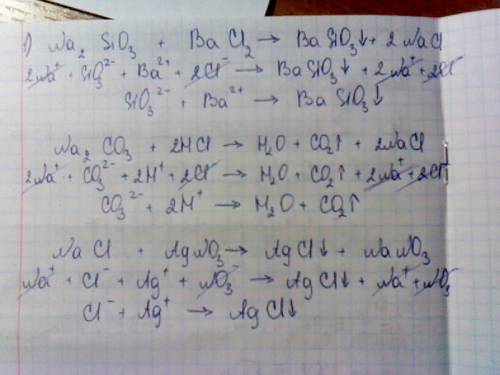 1) Na₂ SiO₃ + Ba Cl₂ → Ba SiO₃↓ + 2 NaCl
2Na⁺ + SiO₃²⁻ + Ba²⁺ + 2Cl⁻ → Ba SiO₃↓ + 2Na⁺ + 2Cl⁻
SiO₃²⁻ + Ba²⁺ → Ba SiO₃↓
Na₂ CO₃ + 2HCl → H₂O + CO₂↑ + 2NaCl
2Na⁺ + CO₃²⁻ + 2H⁺ + 2Cl⁻ → H₂O + CO₂↑ + 2Na⁺ + 2Cl⁻
CO₃²⁻ + 2H⁺ → H₂O + CO₂↑
Na Cl + AgNO₃ → Ag Cl↓ + NaNO₃
Na⁺ + Cl⁻ + Ag⁺ + NO₃⁻ → Ag Cl↓ + Na⁺ + NO₃⁻
Cl⁻ + Ag⁺ → Ag Cl↓